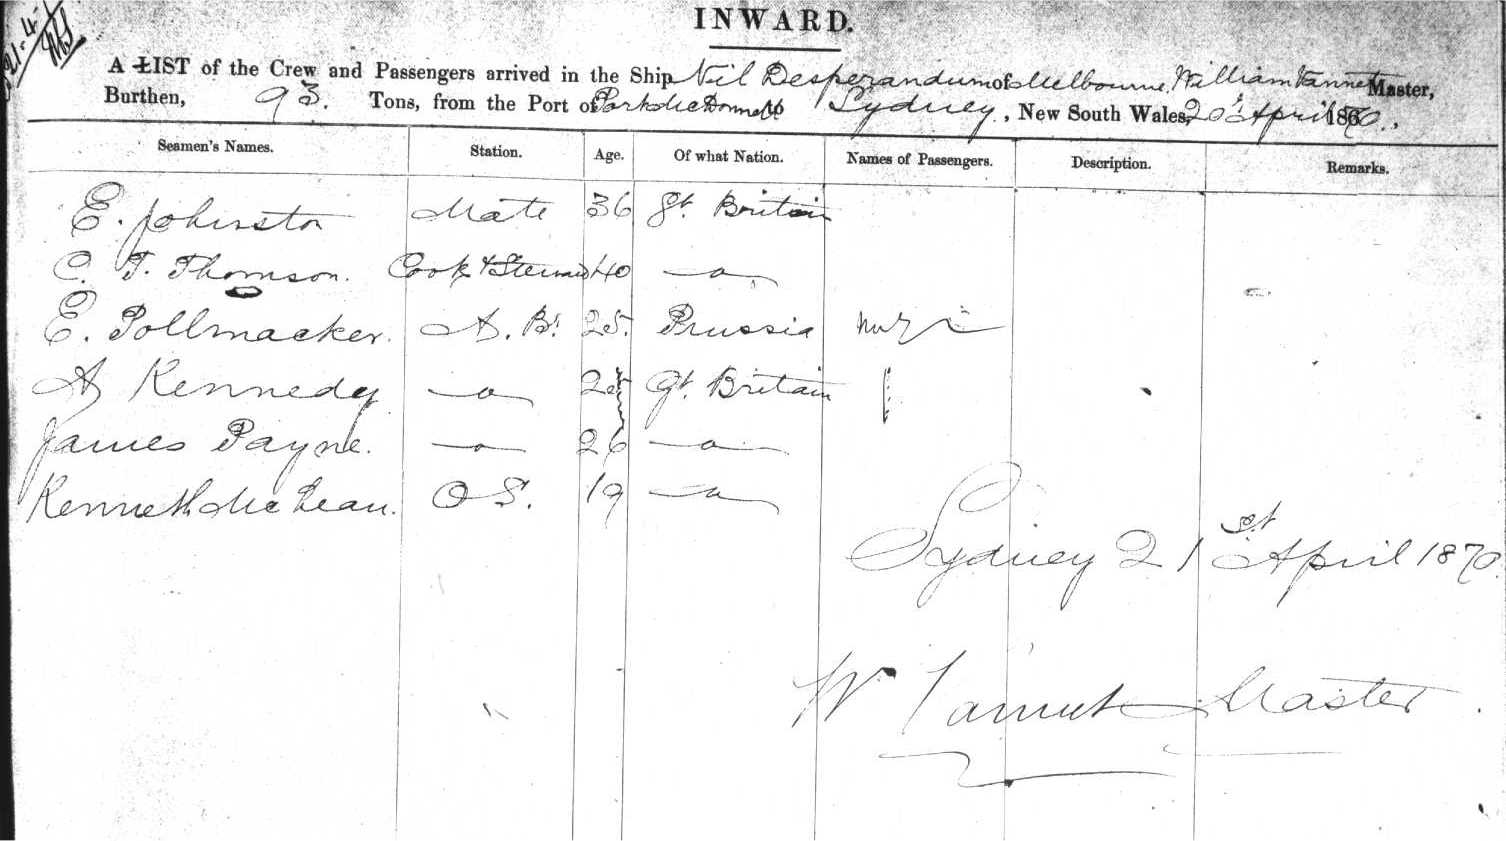 21-4-
INWARD.
A LIST of the Crew and Passengers arrived in the Ship Nil Desperandum of Melbourne, William Master,
Burthen, 93. Tons, from the Port of Port McDonnell Sydney, New South Wales, April 1870.,
Seamen's Names. Station. Age. Of what Nation. Names of Passengers. Description. Remarks.
E. Johnston Mate 36 Gt. Britain
C. T. Thomson. Cook & Steward 40 —"—
E. Pollmacker. A. B. 25. Prussia
A Kennedy —"— Gt. Britain
James Payne. —"— 26 —"—
Kenneth McLean. O S. 19 —"—
Sydney 21st April 1870.
Wm Master.